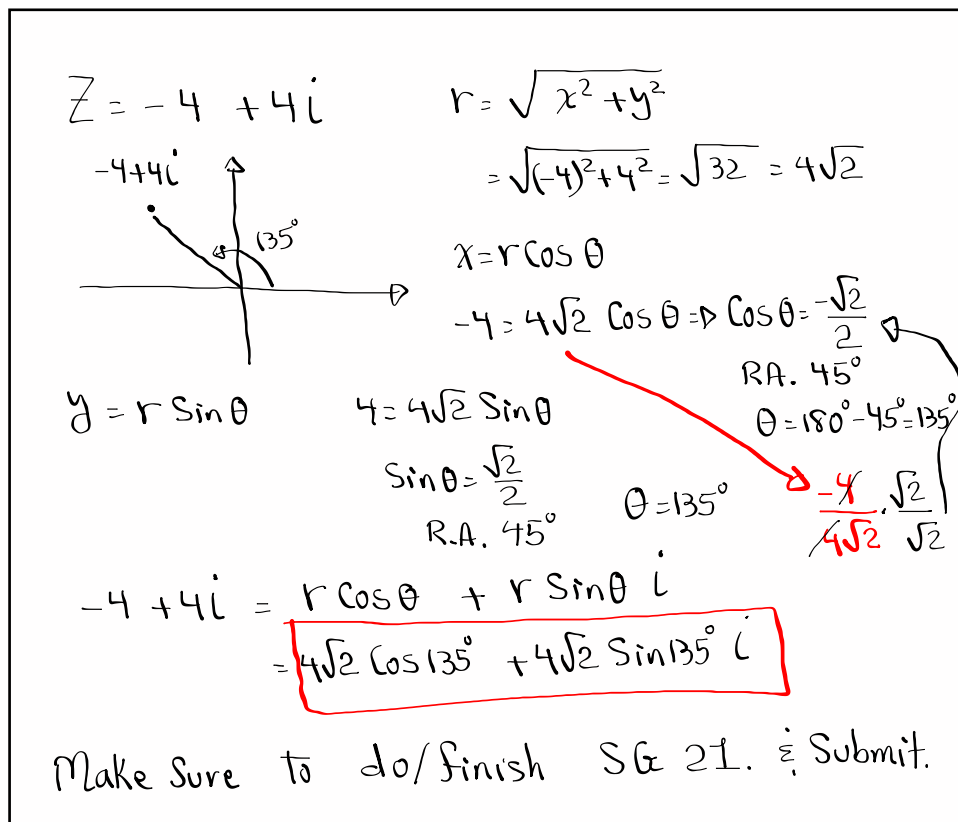 Z = -4 + 4i
r = √(x² + y²)
-4+4i
= √((-4)² + 4²) = √32 = 4√2
135°
x = r Cos θ
-4 = 4√2 Cos θ ⇒ Cos θ = -√2/2
RA. 45°
θ = 180° - 45° = 135°
-4/4√2 · √2/√2
y = r Sin θ
4 = 4√2 Sin θ
Sin θ = √2/2
R.A. 45°
θ = 135°
-4 + 4i = r Cos θ + r Sin θ i
= 4√2 Cos 135° + 4√2 Sin 135° i
Make Sure to do/finish SG 21. & Submit.